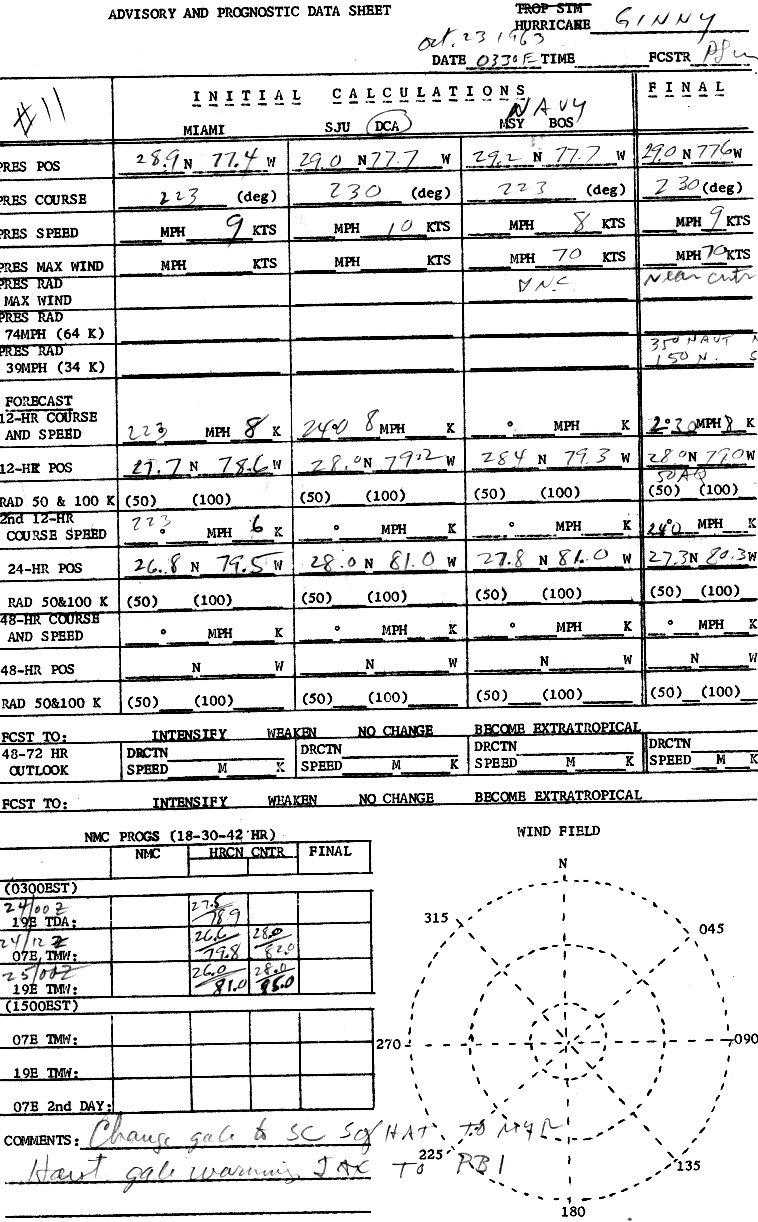 ADVISORY AND PROGNOSTIC DATA SHEET
TROP STM
HURRICANE GINNY
Oct. 23 1963
DATE 0330E TIME FCSTR
#11
INITIAL CALCULATIONS FINAL
NAVY
MIAMI SJU DCA MSY BOS
PRES POS 28.9 N 77.4 W 29.0 N 77.7 W 29.2 N 77.7 W 29.0 N 776 W
PRES COURSE 223 (deg) 230 (deg) 223 (deg) 230 (deg)
PRES SPEED MPH 9 KTS MPH 10 KTS MPH 8 KTS MPH 9 KTS
PRES MAX WIND MPH KTS MPH KTS MPH 70 KTS MPH 70 KTS
PRES RAD
MAX WIND Near cntr
PRES RAD
74MPH (64 K)
PRES RAD 350 NAUT N
39MPH (34 K) 150 N. S
FORECAST
12-HR COURSE
AND SPEED 223 MPH 8 K 240 8 MPH K ° MPH K 230 MPH 8 K
12-HR POS 27.7 N 78.6 W 28.0 N 79.2 W 284 N 79.3 W 28.0 N 79.0 W
RAD 50 & 100 K (50) (100) (50) (100) (50) (100) (50) (100)
2nd 12-HR 223
COURSE SPEED ° MPH 6 K ° MPH K ° MPH K 240 MPH K
24-HR POS 26.8 N 79.5 W 28.0 N 81.0 W 27.8 N 81.0 W 27.3 N 80.3 W
RAD 50&100 K (50) (100) (50) (100) (50) (100) (50) (100)
48-HR COURSE
AND SPEED ° MPH K ° MPH K ° MPH K ° MPH K
48-HR POS N W N W N W N W
RAD 50&100 K (50) (100) (50) (100) (50) (100) (50) (100)
FCST TO: INTENSIFY WEAKEN NO CHANGE BECOME EXTRATROPICAL
48-72 HR DRCTN DRCTN DRCTN DRCTN
OUTLOOK SPEED M K SPEED M K SPEED M K SPEED M K
FCST TO: INTENSIFY WEAKEN NO CHANGE BECOME EXTRATROPICAL
NMC PROGS (18-30-42 HR)
NMC HRCN CNTR FINAL
(0300EST)
24/00Z 27.5
19E TDA: 78.9
24/12Z 26.6 28.0
07E TMW: 79.8 82.0
25/00Z 26.0 28.0
19E TMW: 81.0 85.0
(1500EST)
07E TMW:
19E TMW:
07E 2nd DAY:
WIND FIELD
N
315 045
270 090
225 135
180
COMMENTS: Change gale to SC So of HAT TO MYR
Hoist gale warning JAX TO PBI